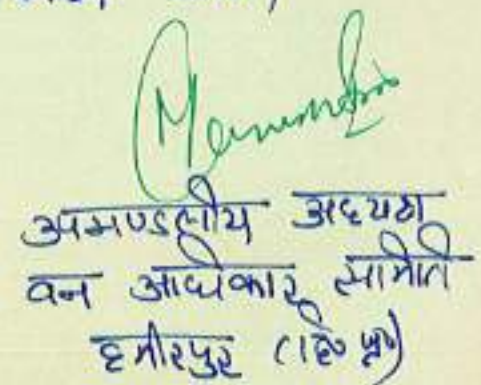 उपमण्डलीय अध्यक्ष
वन अधिकार समिति
हमीरपुर (हि० प्र०)